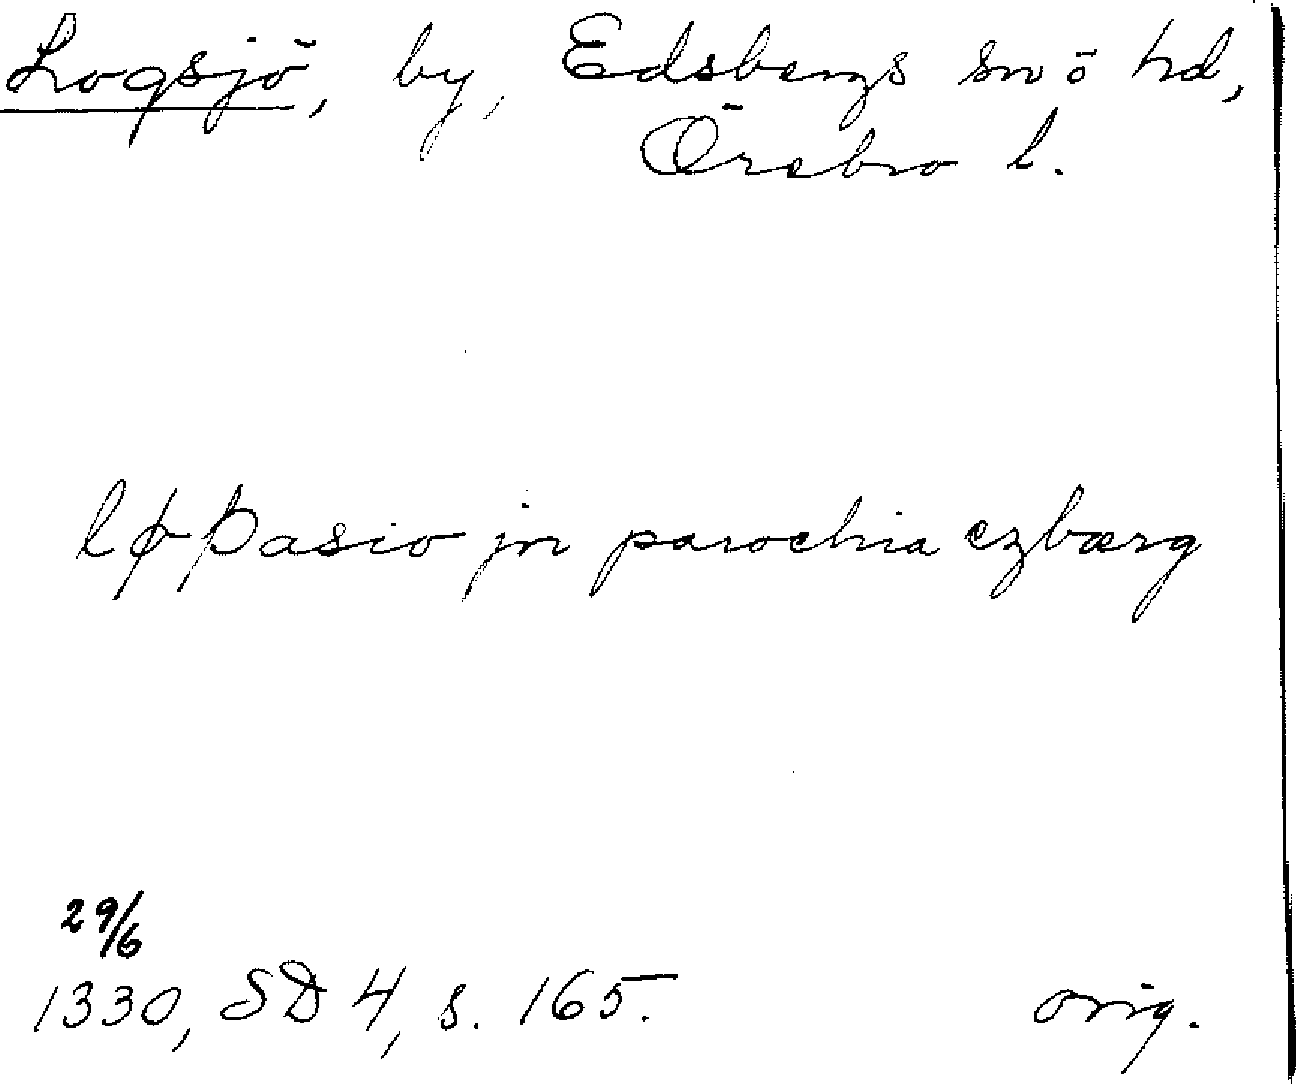 Logsjö, by, Edsbergs sn ö hd,
Örebro l.
løþasio jn parochia ezbærg
29/6
1330, SD 4, s. 165.
orig.